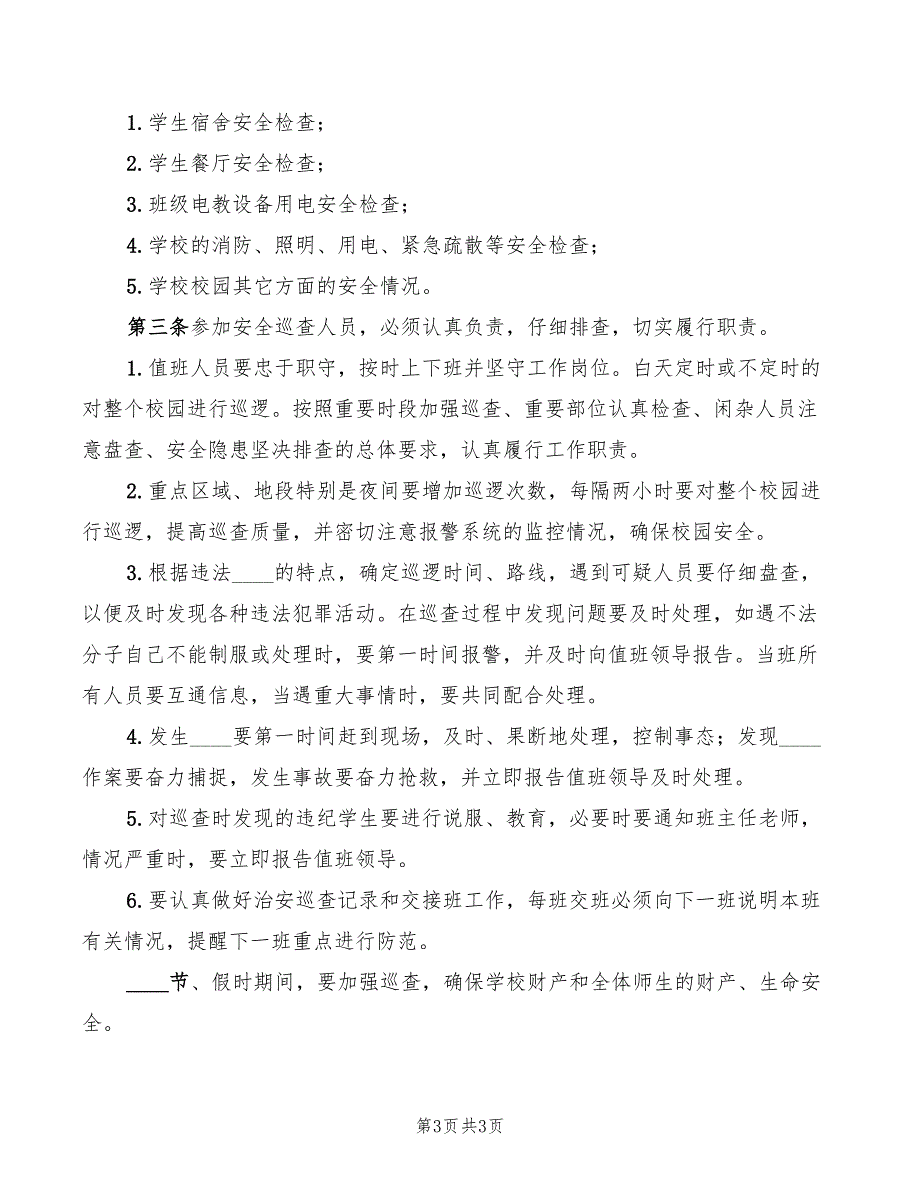 1. 学生宿舍安全检查；
2. 学生餐厅安全检查；
3. 班级电教设备用电安全检查；
4. 学校的消防、照明、用电、紧急疏散等安全检查；
5. 学校校园其它方面的安全情况。
第三条参加安全巡查人员，必须认真负责，仔细排查，切实履行职责。
1. 值班人员要忠于职守，按时上下班并坚守工作岗位。白天定时或不定时的
对整个校园进行巡逻。按照重要时段加强巡查、重要部位认真检查、闲杂人员注
意盘查、安全隐患坚决排查的总体要求，认真履行工作职责。
2. 重点区域、地段特别是夜间要增加巡逻次数，每隔两小时要对整个校园进
行巡逻，提高巡查质量，并密切注意报警系统的监控情况，确保校园安全。
3. 根据违法____的特点，确定巡逻时间、路线，遇到可疑人员要仔细盘查，
以便及时发现各种违法犯罪活动。在巡查过程中发现问题要及时处理，如遇不法
分子自己不能制服或处理时，要第一时间报警，并及时向值班领导报告。当班所
有人员要互通信息，当遇重大事情时，要共同配合处理。
4. 发生____要第一时间赶到现场，及时、果断地处理，控制事态；发现____
作案要奋力捕捉，发生事故要奋力抢救，并立即报告值班领导及时处理。
5. 对巡查时发现的违纪学生要进行说服、教育，必要时要通知班主任老师，
情况严重时，要立即报告值班领导。
6. 要认真做好治安巡查记录和交接班工作，每班交班必须向下一班说明本班
有关情况，提醒下一班重点进行防范。
____节、假时期间，要加强巡查，确保学校财产和全体师生的财产、生命安
全。
第3页 共3页